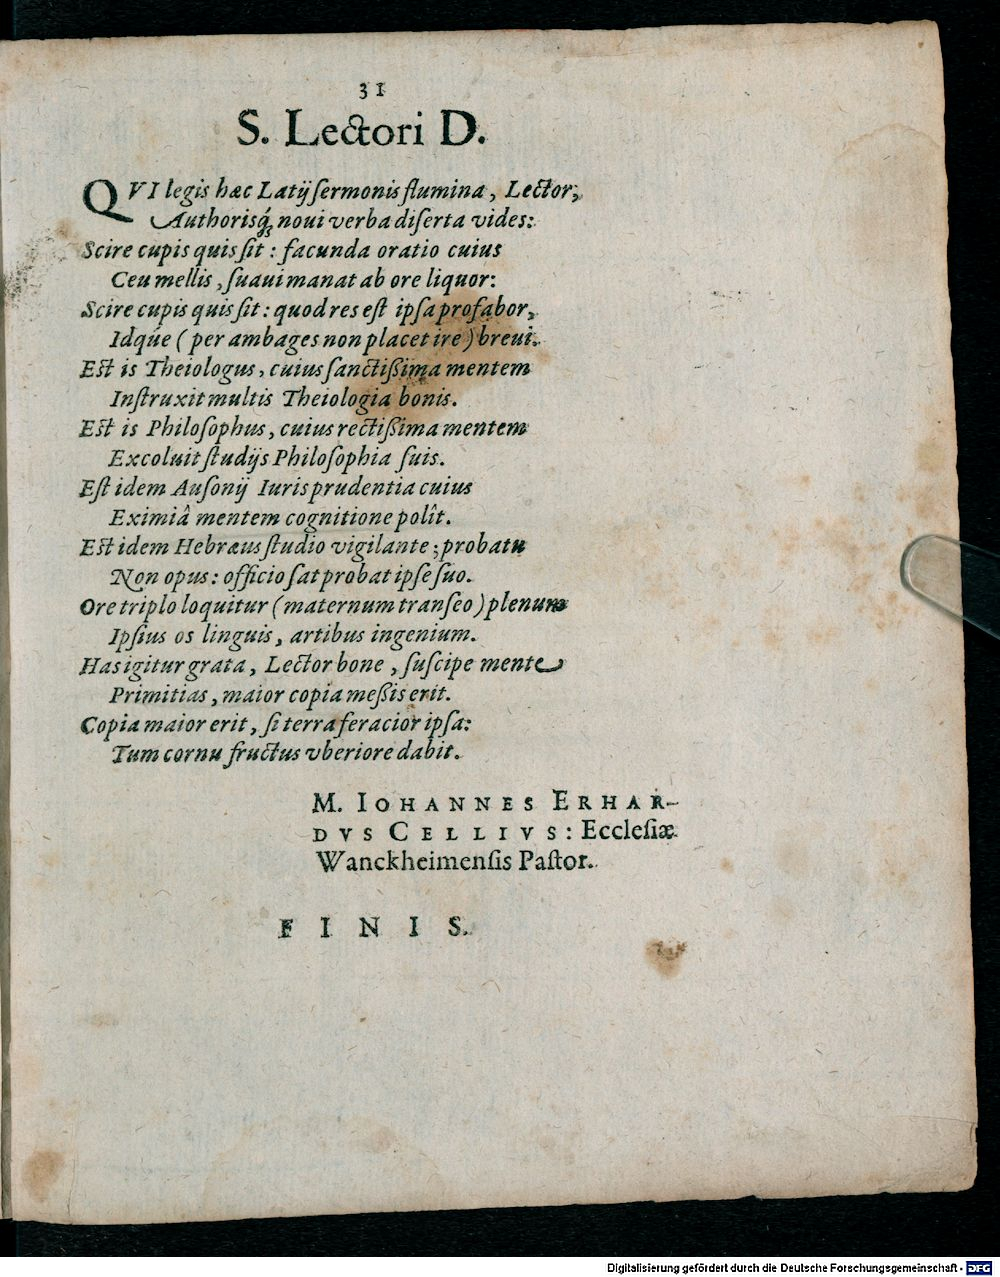 31
S. Lectori D.
QVI legis hæc Latij sermonis flumina, Lector,
Authorisq́; noui verba diserta vides:
Scire cupis quis sit: facunda oratio cuius
Ceu mellis, suaui manat ab ore liquor:
Scire cupis quis sit: quod res est ipsa profabor,
Idque (per ambages non placet ire) breui.
Est is Theiologus, cuius sanctißima mentem
Instruxit multis Theiologia bonis.
Est is Philosophus, cuius rectißima mentem
Excoluit studijs Philosophia suis.
Est idem Ausonij Iurisprudentia cuius
Eximiâ mentem cognitione polît.
Est idem Hebræus studio vigilante; probatu
Non opus: officio sat probat ipse suo.
Ore triplo loquitur (maternum transeo) plenum
Ipsius os linguis, artibus ingenium.
Has igitur grata, Lector bone, suscipe mente
Primitias, maior copia meßis erit.
Copia maior erit, si terra feracior ipsa:
Tum cornu fructus vberiore dabit.
M. IOHANNES ERHAR-
DVS CELLIVS: Ecclesiæ
Wanckheimensis Pastor.
FINIS.
Digitalisierung gefördert durch die Deutsche Forschungsgemeinschaft - DFG